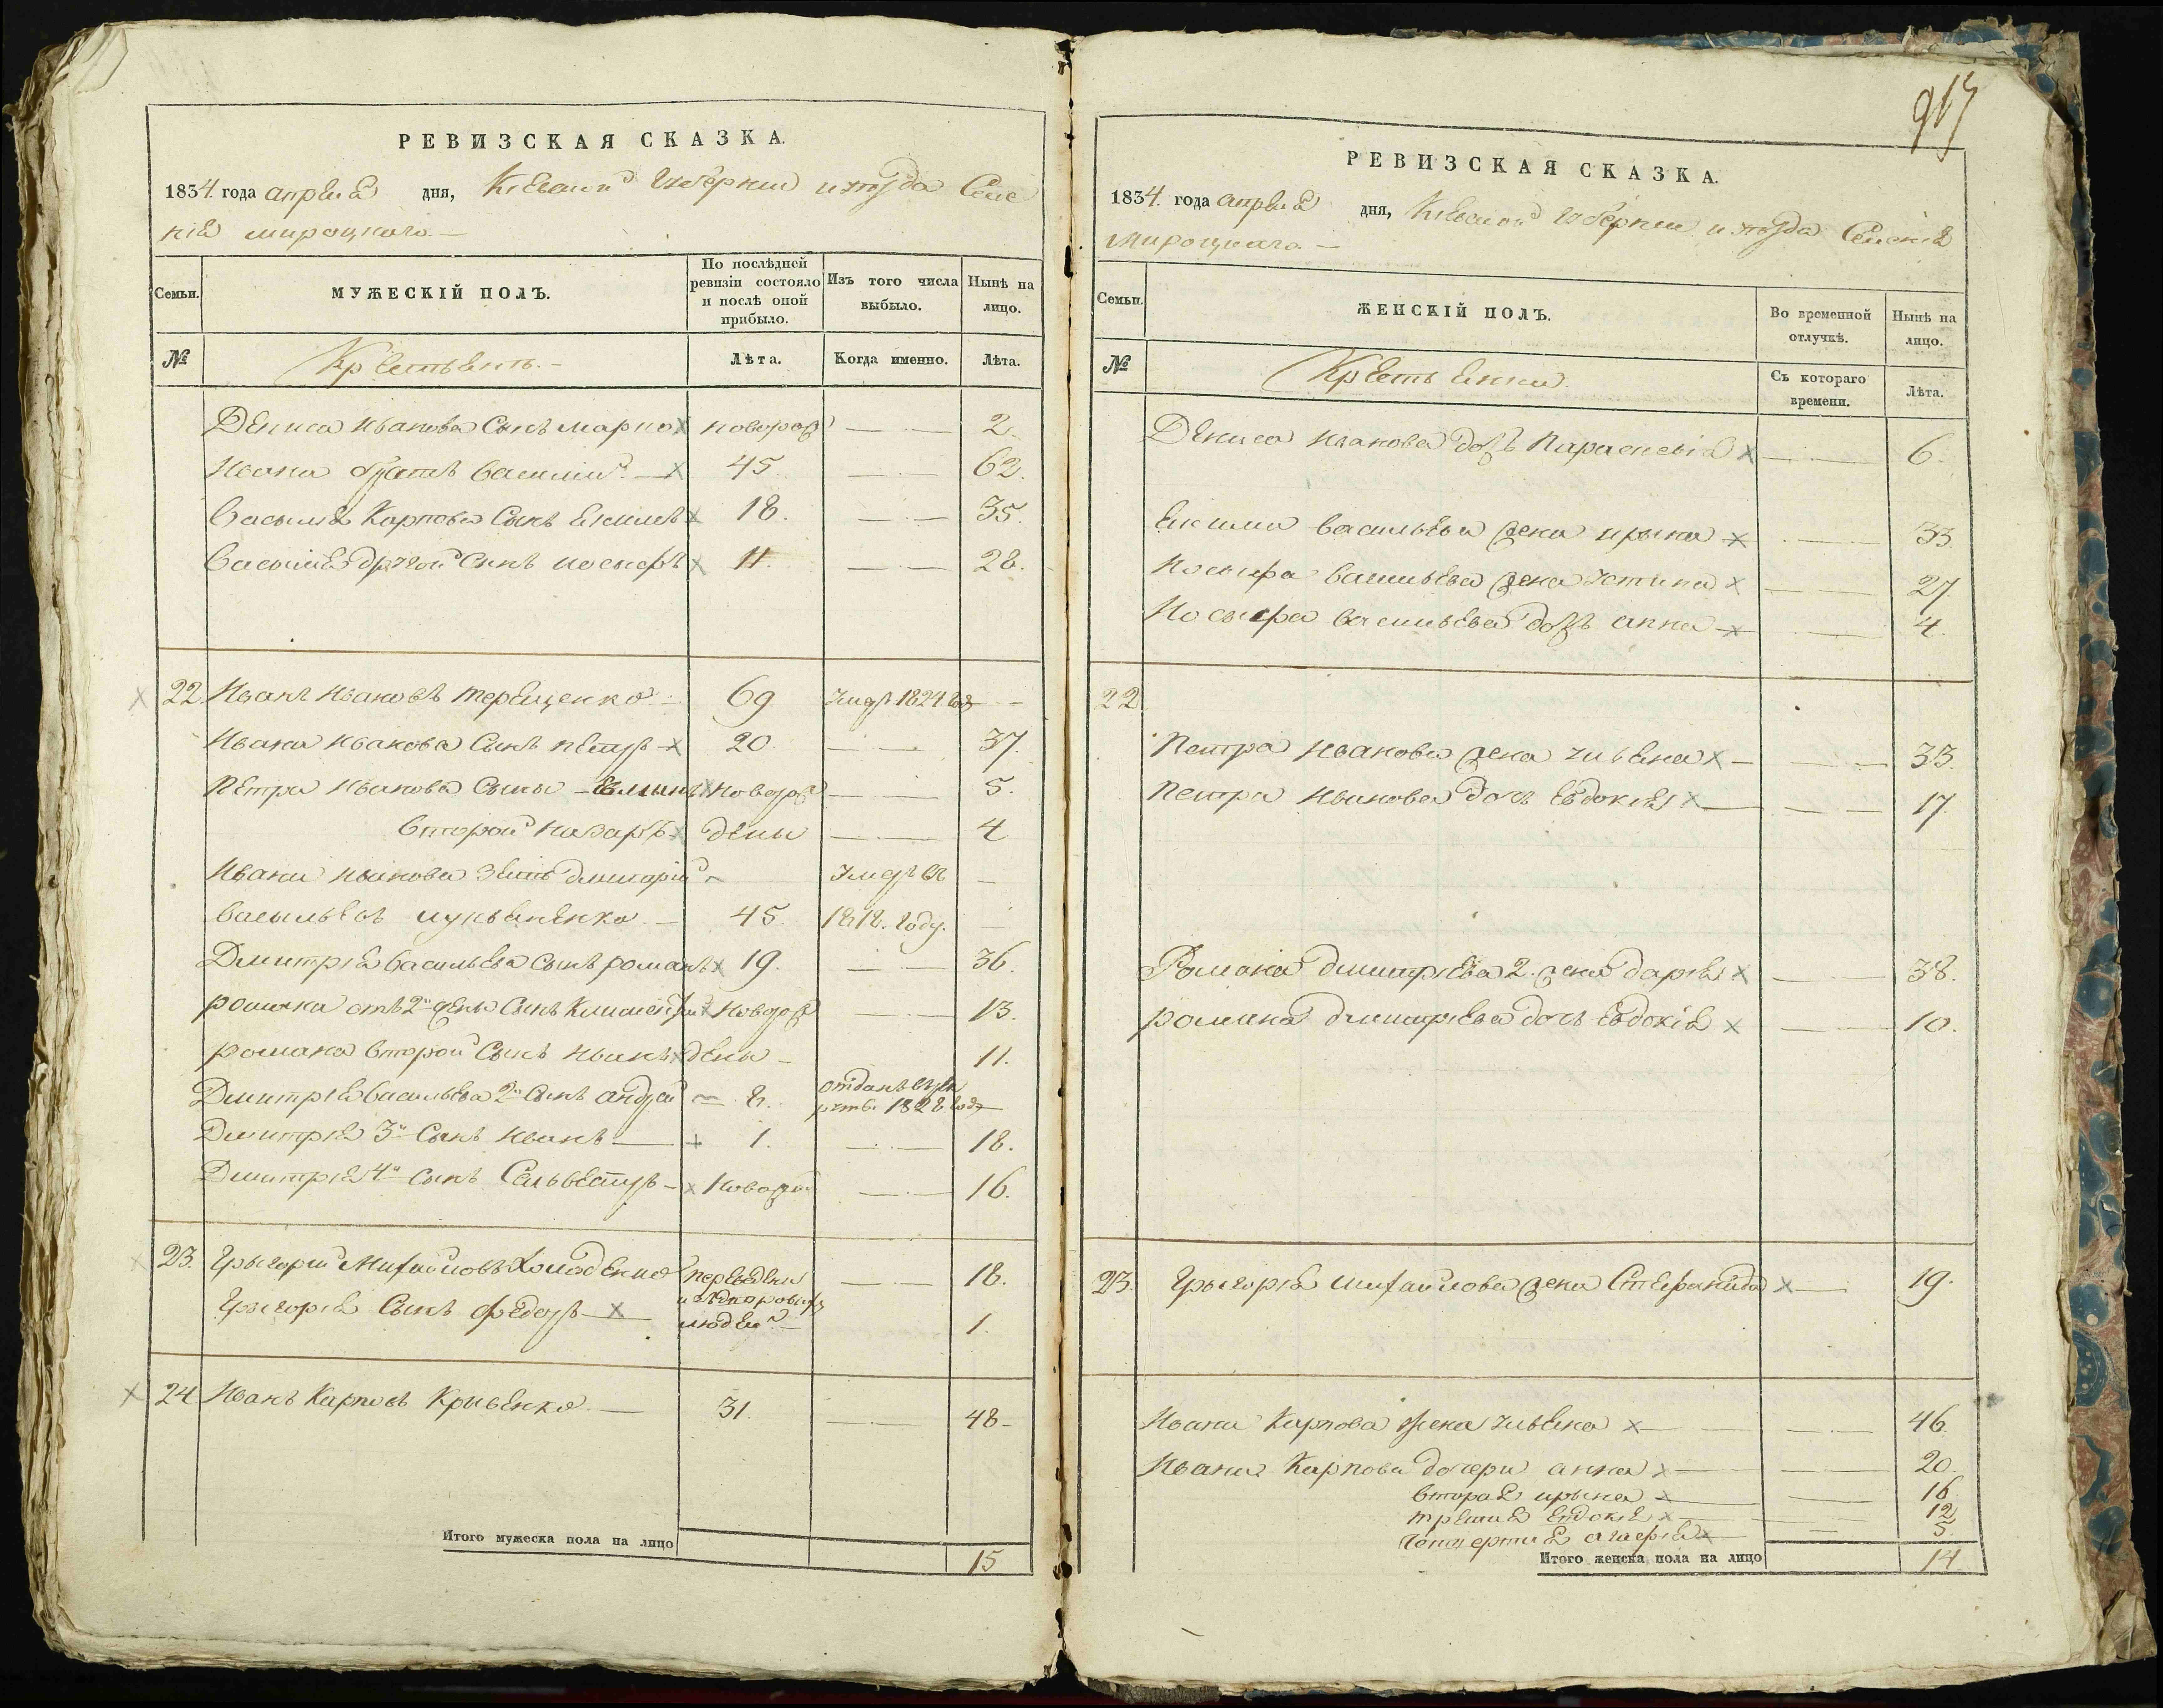 РЕВИЗСКАЯ СКАЗКА.
1834. года апреля дня, Киевской Губернии и уезда Селе
ния мироцкаго. —
Семьи.
МУЖЕСКІЙ ПОЛЪ.
По послѣдней ревизіи состояло и послѣ оной прибыло.
Изъ того числа выбыло.
Нынѣ на лицо.
№
Крестьянъ. —
Лѣта.
Когда именно.
Лѣта.
Дениса иванова Сынъ марко новорож — 2.
Ивана братъ василий — 45. — 62.
Василия Карпова Сынъ екимъ 18. — 35.
Василия другой Сынъ иосифъ 11. — 28.
22 Иванъ ивановъ терещенко — 69 умеръ 1824 год —
Ивана иванова Сынъ петръ 20. — 37.
Петра иванова Сыны — новорож — 5.
второй назаръ дены — 4
Ивана иванова зять дмитрій умеръ въ —
васильевъ лукьяненко — 45. 1818. году. —
Дмитрия васильева сынъ романъ 19. — 36.
романа отъ 2й жены Сынъ новорож — 13.
романа второй Сынъ иванъ дены — 11.
Дмитрия васильева 2й Сынъ андрей — 8. отданъ въ рек
рутъ 1828 год —
Дмитрия 3й Сынъ иванъ — 1. — 18.
Дмитрия 4й сынъ Сильвестръ — новорож — 16.
23. Грыгорий Михайловъ переведены — 18.
Грыгория Сынъ федоръ — людей — 1.
24 Иванъ Карповъ Кривенко — 31. — 48-
Итого мужеска пола на лицо 15
917
РЕВИЗСКАЯ СКАЗКА.
1834. года апреля дня, Киевской Губернии и уезда Селения
Мироцкаго. —
Семьи.
ЖЕНСКІЙ ПОЛЪ.
Во временной отлучкѣ.
Нынѣ на лицо.
№
Крестьянки.
Съ котораго времени.
Лѣта.
Дениса иванова дочь Параскевія — 6.
Екима васильева жена ирына — 33.
Иосифа васильева жена устина — 27.
Иосифа васильева дочь анна — 4.
22.
Петра иванова жена ульяна — 33.
Петра иванова дочь евдокия — 17.
Романа дмитриева 2. жена дария — 38.
романа дмитриева дочь евдокія — 10.
23. Грыгория михайлова жена Стефанида — 19.
Ивана Карпова жена ульяна — 46.
Ивана Карпова дочери анна — 20.
вторая ирына — 16
третия евдокия — 12
четвертая агафия — 5.
Итого женска пола на лицо 14.